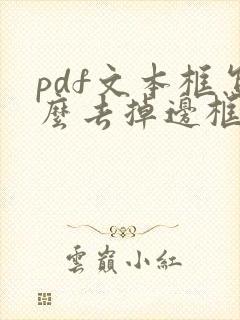 pdf文本框怎
麼去掉邊框
雲巔小紅